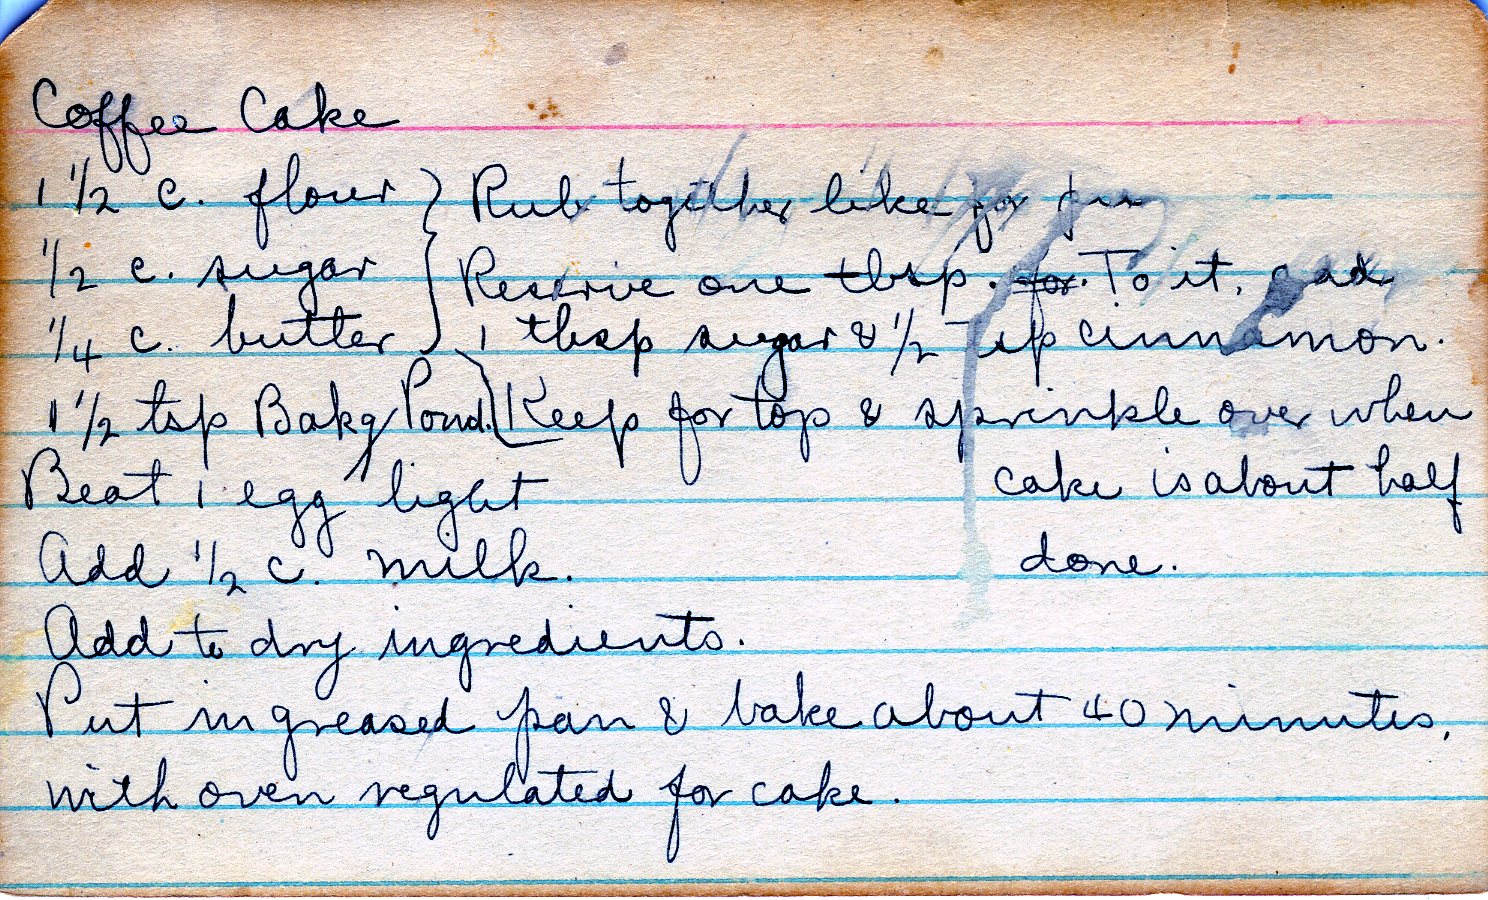 Coffee Cake
1 1/2 c. flour } Rub together like for
1/2 c. sugar } Reserve one tbsp. for. To it, add
1/4 c. butter } 1 tbsp sugar & 1/2 tsp cinnamon.
1 1/2 tsp Bakg Powd. Keep for top & sprinkle over when
Beat 1 egg light cake is about half
Add 1/2 c. milk. done.
Add to dry ingredients.
Put in greased pan & bake about 40 minutes,
with oven regulated for cake.